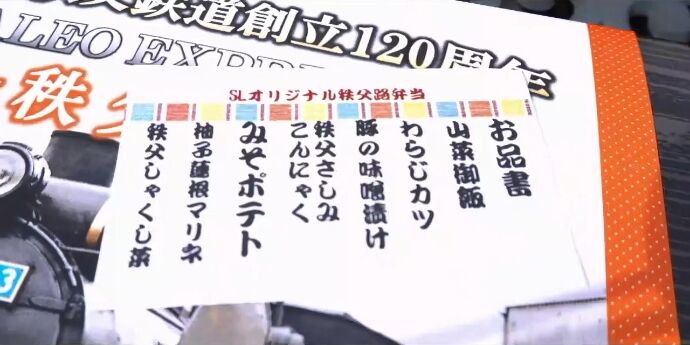 鉄道創立120周年
LEO EXPRE
秩父
SLオリジナル秩父路弁当
お品書
山菜御飯
わらじカツ
豚の味噌漬け
秩父さしみ
こんにゃく
みそポテト
柚子蓮根マリネ
秩父しゃくし菜
3